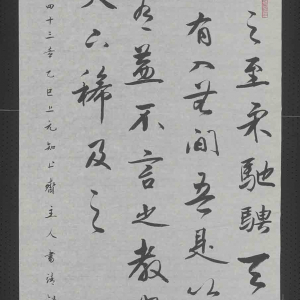 之至柔馳騁天
有入無間吾是以
有益不言之教
天下稀及之
四十三章乙巳上元知止齋主人書